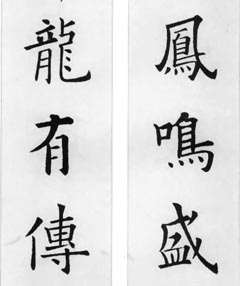 鳳鳴盛
龍有傳